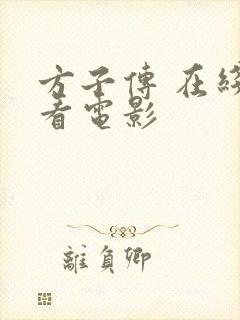 方子傳 在綫
看電影
離負卿